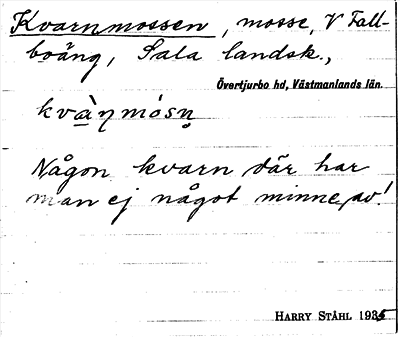 Kvarnmossen, mosse, V Fall-
boäng, Sala landsk.,
Övertjurbo hd, Västmanlands län.
kvàn̥mósn̥
Någon kvarn där har
man ej något minne av!
HARRY STÅHL 1935